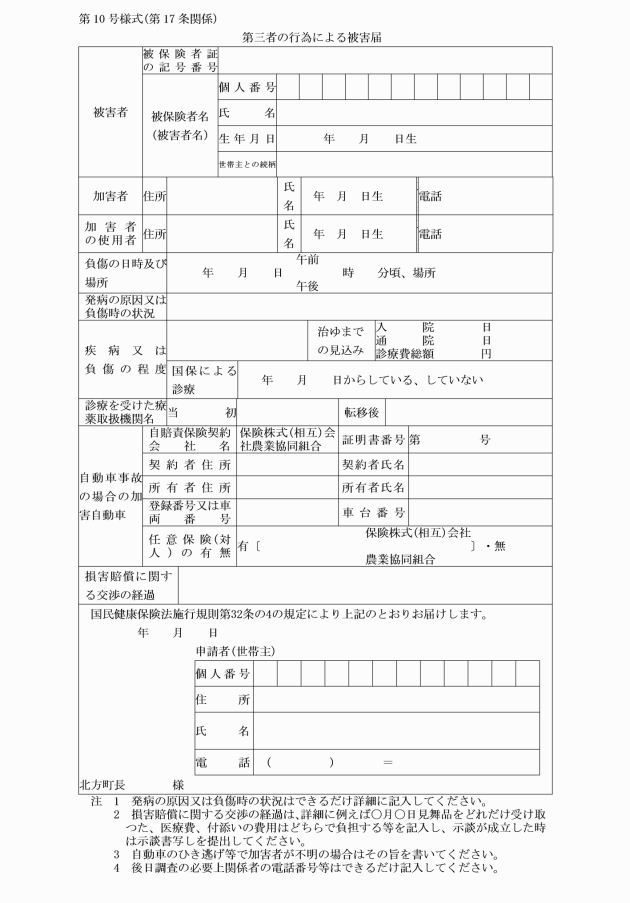 第10号様式(第17条関係)
第三者の行為による被害届
被害者
被保険者証の記号番号
被保険者名(被害者名)
個人番号
氏名
生年月日 年 月 日生
世帯主との続柄
加害者 住所 氏名 年 月 日生 電話
加害者の使用者 住所 氏名 年 月 日生 電話
負傷の日時及び場所 年 月 日 午前 午後 時 分頃、場所
発病の原因又は負傷時の状況
疾病又は負傷の程度
治ゆまでの見込み
入院 日
通院 日
診療費総額 円
国保による診療 年 月 日からしている、していない
診療を受けた療薬取扱機関名 当初 転移後
自動車事故の場合の加害自動車
自賠責保険契約会社名 保険株式(相互)会社農業協同組合 証明書番号 第 号
契約者住所 契約者氏名
所有者住所 所有者氏名
登録番号又は車両番号 車台番号
任意保険(対人)の有無 有〔 保険株式(相互)会社 農業協同組合 〕・無
損害賠償に関する交渉の経過
国民健康保険法施行規則第32条の4の規定により上記のとおりお届けします。
年 月 日
申請者(世帯主)
個人番号
住所
氏名
電話 ( ) =
北方町長 様
注 1 発病の原因又は負傷時の状況はできるだけ詳細に記入してください。
2 損害賠償に関する交渉の経過は、詳細に例えば〇月〇日見舞品をどれだけ受け取
つた、医療費、付添いの費用はどちらで負担する等を記入し、示談が成立した時
は示談書写しを提出してください。
3 自動車のひき逃げ等で加害者が不明の場合はその旨を書いてください。
4 後日調査の必要上関係者の電話番号等はできるだけ記入してください。